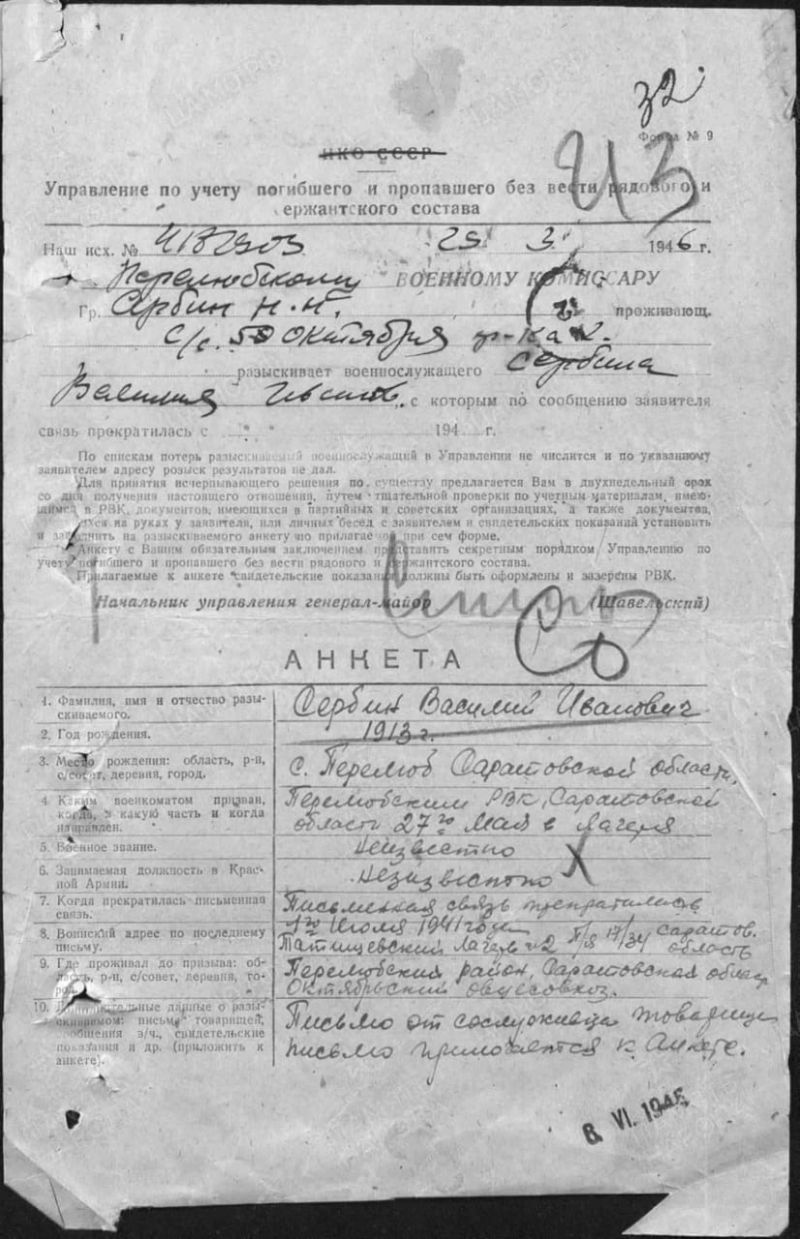 32
Форма № 9
НКО СССР
ИЗ
Управление по учету погибшего и пропавшего без вести рядового и
сержантского состава
Наш исх. № 29 3 1946 г.
Перелюбскому ВОЕННОМУ КОМИССАРУ
Гр. Сербин Н.Н. проживающ.
Октября
разыскивает военнослужащего Сербина
Василия с которым по сообщению заявителя
связь прекратилась с " " 194 г.
По спискам потерь разыскиваемый военнослужащий в Управлении не числится и по указанному
заявителем адресу розыск результатов не дал.
Для принятия исчерпывающего решения по существу предлагается Вам в двухнедельный срок
со дня получения настоящего отношения, путем тщательной проверки по учетным материалам, имею-
щимся в РВК, документов, имеющихся в партийных и советских организациях, а также документов,
на руках у заявителя, или личных бесед с заявителем и свидетельских показаний установить
и заполнить на разыскиваемого анкету по прилагаемой при сем форме.
Анкету с Вашим обязательным заключением представить секретным порядком Управлению по
учету погибшего и пропавшего без вести рядового и сержантского состава.
Прилагаемые к анкете свидетельские показания должны быть оформлены и заверены РВК.
Начальник управления генерал-майор (Шавельский)
АНКЕТА
1. Фамилия, имя и отчество разы-
скиваемого.
Сербин Василий Иванович
2. Год рождения.
1913 г.
3. Место рождения: область, р-н,
с/совет, деревня, город.
с. Перелюб Саратовской области,
4. Каким военкоматом призван,
когда, в какую часть и когда
направлен.
Перелюбским РВК, Саратовской
области 27го Мая в Лагеря
5. Военное звание.
Неизвестно
6. Занимаемая должность в Крас-
ной Армии.
Неизвестно
7. Когда прекратилась письменная
связь.
Письменная связь прекратилась
1го Июля 1941 года
8. Воинский адрес по последнему
письму.
Татищевский Лагерь № 2 п/я 17/34 Саратов.
область
9. Где проживал до призыва: об-
ласть, р-н, с/совет, деревня, го-
род.
Перелюбский район, Саратовская област
Октябрьский овцесовхоз.
10. Дополнительные данные о разы-
скиваемом: письма товарищей,
сообщения в/ч., свидетельские
показания и др. (приложить к
анкете).
Письмо от сослуживца товарища
письмо прилогается к Анкете.
8. VI. 1946